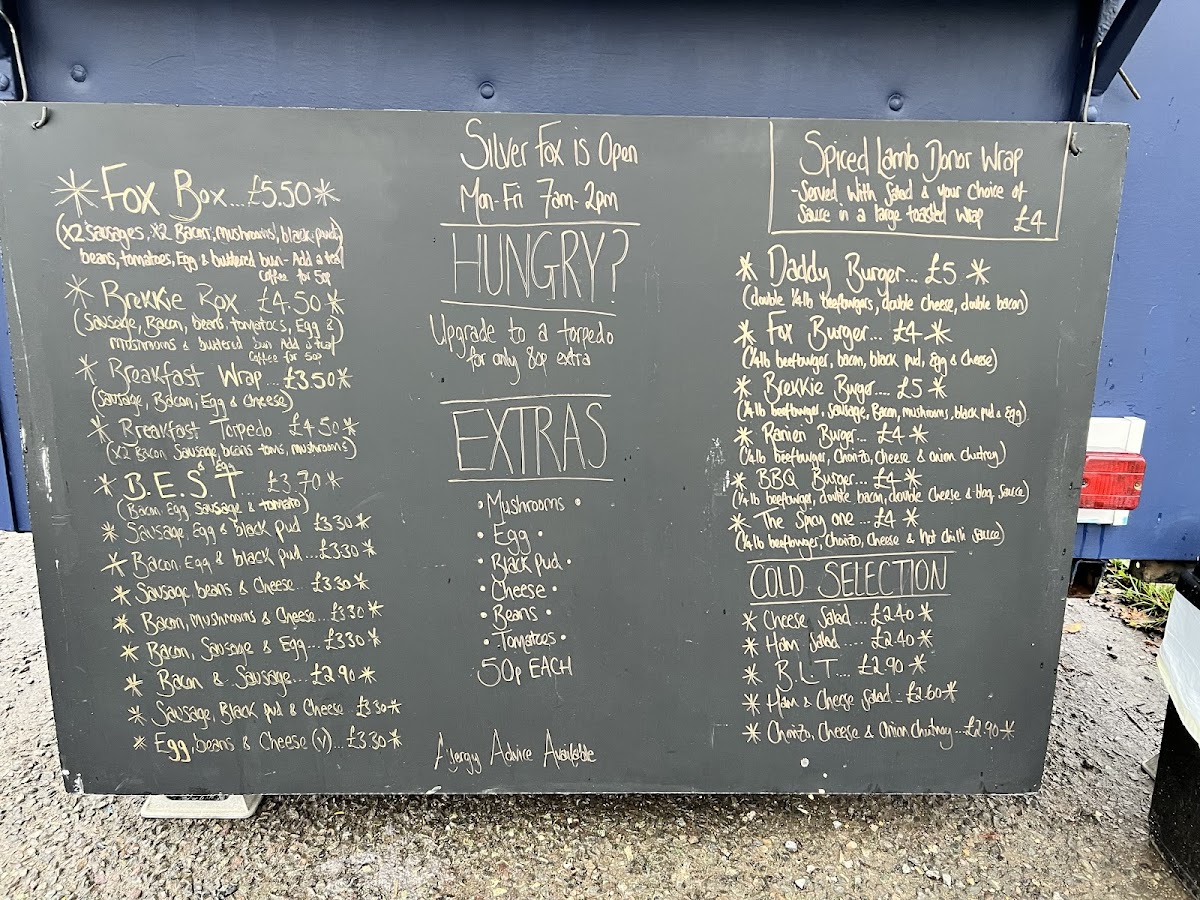 Fox Box...£5.50
(x2 Sausages, x2 Bacon, mushrooms, black pud,
beans, tomatoes, Egg & buttered bun - Add a tea/
Coffee for 50p
Brekkie Box £4.50
(Sausage, Bacon, beans, tomatoes, Egg &
mushrooms & buttered bun Add a tea/
Coffee for 50p
Breakfast Wrap...£3.50
(Sausage, Bacon, Egg & Cheese)
Breakfast Torpedo £4.50
(x2 Bacon, Sausage, beans, toms, mushrooms)
& Egg
B.E.S.T...£3.70
(Bacon, Egg, Sausage & tomato)
Sausage, Egg & black pud £3.30
Bacon, Egg & black pud...£3.30
Sausage, beans & Cheese...£3.30
Bacon, mushrooms & Cheese...£3.30
Bacon, Sausage & Egg...£3.30
Bacon & Sausage...£2.90
Sausage, Black pud & Cheese £3.30
Egg, beans & Cheese (v)...£3.30
Silver Fox is Open
Mon-Fri 7am-2pm
HUNGRY?
Upgrade to a torpedo
for only 80p extra
EXTRAS
• Mushrooms •
• Egg •
• Black pud •
• Cheese •
• Beans •
• Tomatoes •
50p EACH
Alergy Advice Available
Spiced Lamb Donor Wrap
- Served with Salad & your choice of
Sauce in a large toasted wrap £4
Daddy Burger...£5
(double ¼lb beefburgers, double cheese, double bacon)
Fox Burger...£4
(¼lb beefburger, bacon, black pud, Egg & Cheese)
Brekkie Burger....£5
(¼lb beefburger, Sausage, Bacon, mushrooms, black pud & Egg)
Ranien Burger...£4
(¼lb beefburger, Chorizo, Cheese & onion chutney)
BBQ Burger...£4
(¼lb beefburger, double bacon, double Cheese & bbq Sauce)
The Spicy one...£4
(¼lb beefburger, Chorizo, Cheese & hot chilli sauce)
COLD SELECTION
Cheese Salad...£2.40
Ham Salad....£2.40
B.L.T...£2.90
Ham & Cheese Salad..£2.60
Chorizo, Cheese & Onion Chutney...£2.90